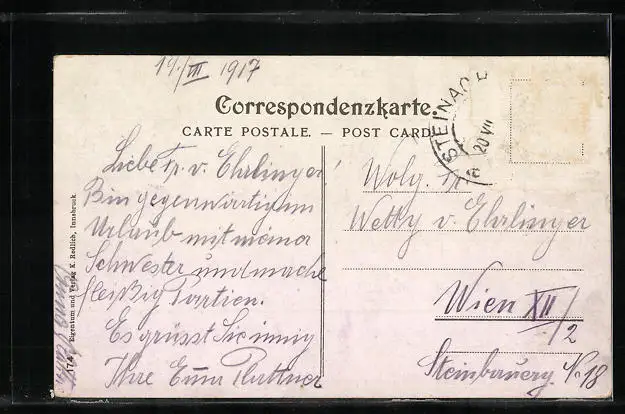 19./VII 1917
Correspondenzkarte.
CARTE POSTALE. — POST CARD
STEINAC
20 VII
Liebe Fr. v. Ehrlinger!
Bin gegenwärtig im
Urlaub mit meiner
Schwester und mache
fleißig Partien.
Es grüsst Sie innig
Ihre
Wolg. Fr.
Wetty v. Ehrlinger
Wien XII/2
Steinbauerg. No 18
Eigentum und Verlag K. Redlich, Innsbruck